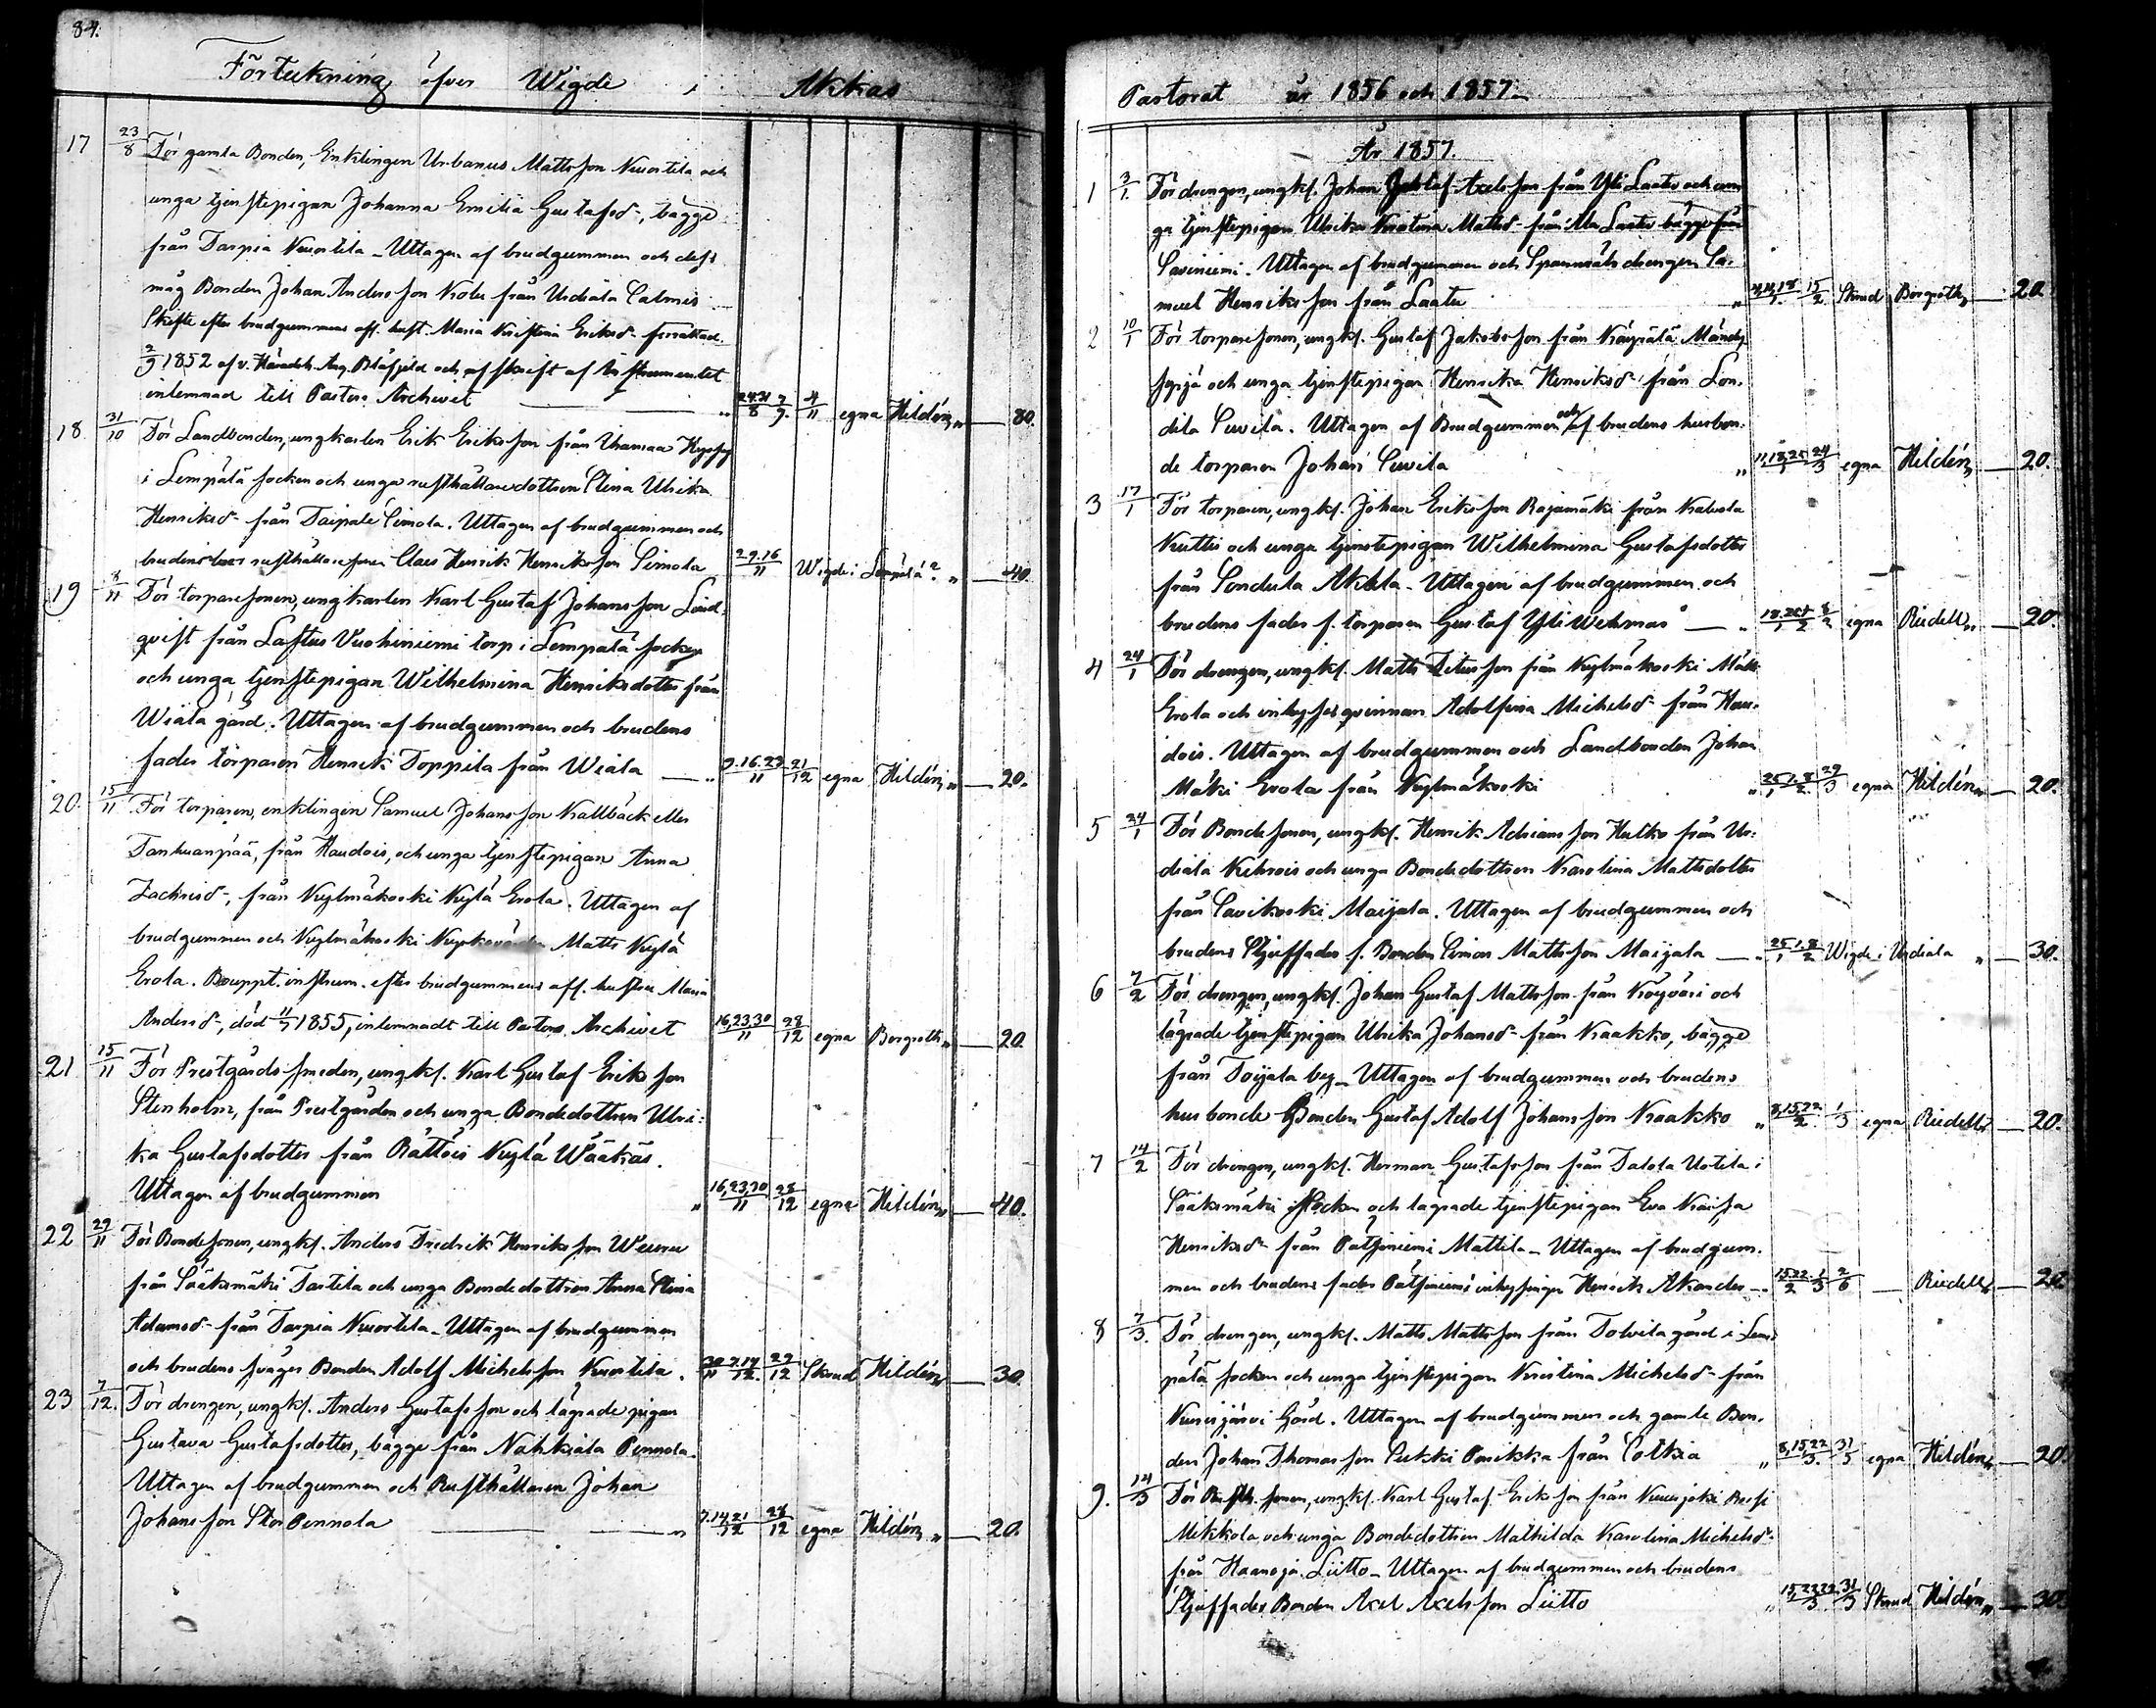 84.
Förteckning öfver Wigde i Akkas
17 23/8 För gamla Bonden, Enklingen Urbanus Mattsson Nuortila och
unga tjenstepigan Johanna Emilia Gustafsd-, bägge
från Tarpia Nuortila - Uttagen af brudgummen och dess
måg Bonden Johan Andersson Kola från Urdiala Calmis
Skifte efter brudgummens afl. hust. Maria Kristina Eriksd- förrättad
2/9 1852 af v. Häradsh. Aug. Blåfjeld och afskrift af Instrumentet
inlemnad till Pastors Archivet „ 24.31/8 7/9. 4/11 egna Hildén „ — 80.
18. 31/10 För Landbonden, ungkarlen Erik Eriksson från
i Lempälä socken och unga rusthållaredottren Stina Ulrika
Henriksd- från Taipale Simola. Uttagen af brudgummen och
brudens rusthållaresonen Claes Henrik Henriksson Simola 2.9.16/11 Wigde i Lempälä? „ — 40.
19 8/11 För torparesonen, ungkarlen Karl Gustaf Johansson Lind-
qvist från Lastus Vuohiniemi torp i Lempälä socken
och unga tjenstepigan Wilhelmina Henriksdotter från
Wiala gård. Uttagen af brudgummen och brudens
fader torparen Henrik Toppila från Wiala — „ 9.16.23/11 21/12 egna Hildén „ — 20.
20. 15/11 För torparen, enklingen Samuel Johansson Kallbäck eller
Tanhuanpää, från Haudois, och unga tjenstepigan Anna
Zachrisd-, från Kylmäkoski Kylä Erola. Uttagen af
brudgummen och Kylmäkoski Matts Kylä
Erola. Bouppt. instrum. efter brudgummens afl. hustru Maria
Andersd-, död 11/7 1855, inlemnadt till Pastors Archivet 16,23,30/11 28/12 egna Borgroth „ — 20.
21 15/11 För Prestgårds smeden, ungk. Karl Gustaf Eriksson
Stenholm, från Prestgården och unga Bondedottren Ulri-
ka Gustafsdotter från Rättöis Kylä Wääkäs.
Uttagen af brudgummen „ 16,23,30/11 28/12 egna Hildén „ — 40.
22 29/11 För Bondesonen, ungk. Anders Fredrik Henriksson
från Sääksmäki Tastila och unga Bondedottren Anna Stina
Adamsd- från Tarpia Nuortila - Uttagen af brudgummen
och brudens svåger Bonden Adolf Michelsson Nuortila. 30/11 7.14/12. 29/12 Skrud Hildén „ — 30.
23 7/12. För drengen, ungk. Anders Gustafsson och lägrade pigan
Gustava Gustafsdotter, bägge från Nahkiala Pennola.
Uttagen af brudgummen och Rusthållaren Johan
Johansson Stor Pennola — — „ 7.14.21/12 28/12 egna Hildén „ — 20.
Pastorat år 1856 och 1857.
År 1857.
1 3/1. För drengen, ungk. Johan Axelsson från Yli Laate och un-
ga tjenstepigan Ulrika Kristina Mattsd- från Ala Laate bägge från
Saviniemi. Uttagen af brudgummen och Spannmåls drengen Sa-
muel Henriksson från Laate „ 4,11,18/1. 15/2 Skrud Borgroth, — 20.
2 10/1 För torparesonen, ungk. Gustaf Jakobsson från
och unga tjenstepigan Henrika Henriksd- från Lon-
dila Suvila. Uttagen af Brudgummen och af brudens husbon-
de torparen Johan Suvila „ 11,18,25/1 29/3 egna Hildén, — 20.
3 17/1 För torparen, ungk. Johan Eriksson Rajamäki från Kalvola
Kuttis och unga tjenstepigan Wilhelmina Gustafsdotter
från Sondula Akkla - Uttagen af brudgummen och
brudens fader f. torparen Gustaf Yli Wehmas — „ 18,25/1 1/2 8/2 egna Riidell „ — 20.
4 24/1 För drengen, ungk. Matts Titusson från Kylmäkoski Mäki
Erola och inhyses qvinnan Adolfina Michelsd- från Hau-
dois. Uttagen af brudgummen och Landbonden Johan
Mäki Erola från Kylmäkoski „ 25/1 1.8/2 29/3 egna Hildén „ — 20.
5 24/1 För Bondesonen, ungk. Henrik Adriansson Hulko från Ur-
diala Kehrois och unga Bondedottren Karolina Mattsdotter
från Savikoski Maijala. Uttagen af brudgummen och
brudens Stjuffader f. Bonden Simon Mattsson Maijala — „ 25/1 1.8/2 Wigde i Urdiala „ — 30.
6 7/2 För drengen, ungk. Johan Gustaf Mattsson från Köyväri och
lägrade tjenstepigan Ulrika Johansd- från Kraakko, bägge
från Toijala by - Uttagen af brudgummen och brudens
husbonde Bonden Gustaf Adolf Johansson Kraakko „ 8,15,22/2. 1/3 egna Riidell „ — 20.
7 14/2 För drengen, ungk. Herman Gustafsson från Talola Uotila i
Sääksmäki socken och lägrade tjenstepigan Eva Kaisa
Henriksd- från Pätsiniemi Mattila - Uttagen af brudgum-
men och brudens fader Pätsiniemi inhysingen Henrik Akander — 15.22/2 1/3 2/6 — Riidell — 20.
8 7/3. För drengen, ungk. Matts Mattsson från Tolvila gård i Lem-
pälä socken och unga tjenstepigan Kristina Michelsd- från
Kurisjärvi Gård. Uttagen af brudgummen och gamle Bon-
den Johan Thomasson Pukki Parikka från Sotkia „ 8,15,22/3. 31/5 egna Hildén „ — 20.
9. 14/3 För Rusth. sonen, ungk. Karl Gustaf Eriksson från Kurisjoki
Mikkola och unga Bondedottren Mathilda Karolina Michelsd-
från Haanoja Liitto - Uttagen af brudgummen och brudens
Stjuffader Bonden Axel Axelsson Liitto „ 15,22,29/3. 31/3 Skrud Hildén „ — 30.